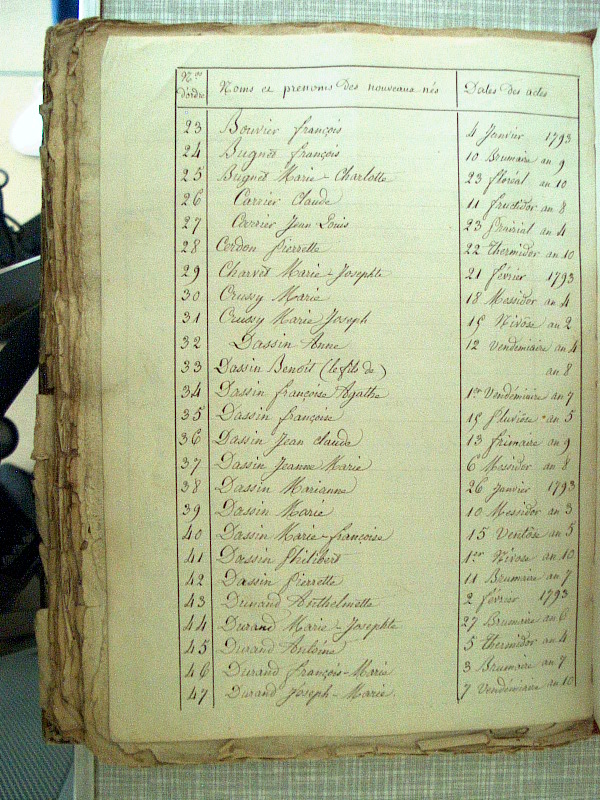 Nos d'ordre Noms et prenoms des nouveaux nés Dates des actes
23 Bouvier françois 4 Janvier 1793
24 Bugnet françois 10 Brumaire an 9
25 Bugnet Marie-Charlotte 23 floréal an 10
26 Carrier Claude 11 fructidor an 8
27 Carrier Jean Louis 23 Prairial an 4
28 Cordon Pierrette 22 thermidor an 10
29 Charvet Marie-Josephte 21 février 1793
30 Crussy Marie 18 Messidor an 4
31 Crussy Marie Joseph 15 Nivôse an 2
32 Dassin Anne 12 Vendémiaire an 4
33 Dassin Benoit (le fils de) an 8
34 Dassin françoise Agathe 1er Vendémiaire an 7
35 Dassin françoise 15 Pluviôse an 5
36 Dassin Jean claude 13 frimaire an 9
37 Dassin Jeanne Marie 6 Messidor an 8
38 Dassin Marianne 26 Janvier 1793
39 Dassin Marie 10 Messidor an 3
40 Dassin Marie-françoise 15 Ventôse an 5
41 Dassin Philibert 1er Nivose an 10
42 Dassin Pierrette 11 Brumaire an 7
43 Durand Anthelmette 2 février 1793
44 Durand Marie-Josephte 27 Brumaire an 6
45 Durand Antoine 5 thermidor an 4
46 Durand françois-Marie 3 Brumaire an 7
47 Durand Joseph-Marie. 7 Vendémiaire an 10